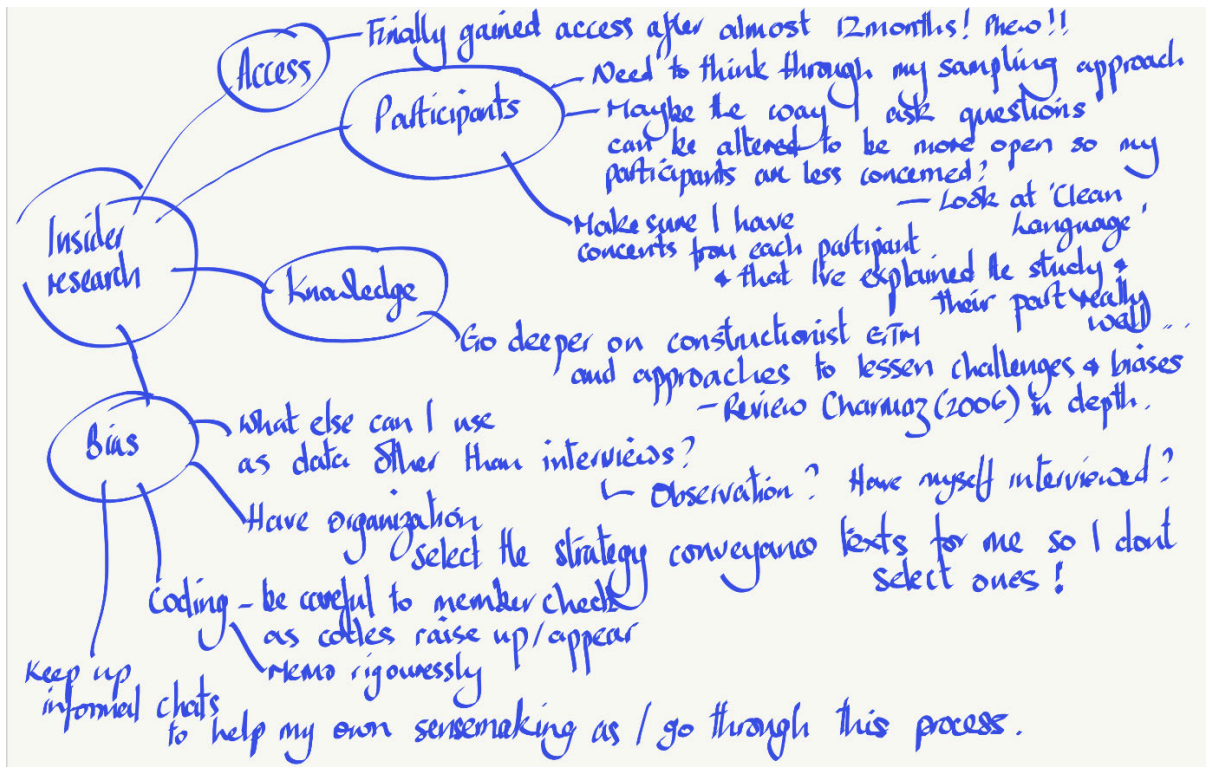 Access
Finally gained access after almost 12months! Phew!!
Participants
Need to think through my sampling approach
Maybe the way I ask questions
can be altered to be more open so my
participants are less concerned?
— Look at 'Clean
Language'
Make sure I have
concents from each partipant
& that I've explained the study &
their part really
well ...
Insider
research
Knowledge
Go deeper on constructionist GTM
and approaches to lessen challenges & biases
— Review Charmaz (2006) in depth.
Bias
What else can I use
as data other than interviews?
Observation? Have myself interviewed?
Have organization
select the strategy conveyance texts for me so I dont
select ones!
Coding – be careful to member check
as codes raise up/appear
Memo rigouressly
Keep up
informal chats
to help my own sensemaking as I go through this process.